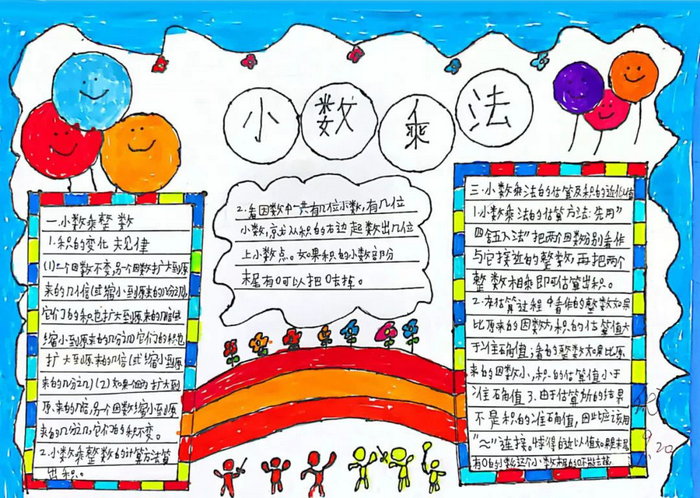 小数乘法
一.小数乘整数
1.积的变化规律
(1)一个因数不变,另一个因数扩大到原
来的几倍(或缩小到原来的几分之几)
它们的积也扩大到原来的几倍或
缩小到原来的几分之几它们的积也
扩大到原来的几倍(或缩小到原
来的几分之几)(2)如果一个因数扩大到
原来的几倍,另一个因数缩小到原
来的几分之几,它们的积不变。
2.小数乘整数的计算方法算
出积。
2.看因数中一共有几位小数,有几位
小数,就从积的右边起数出几位
上小数点。如果积的小数部分
末尾有0可以把0去掉。
三.小数乘法的估算及积的近似值
1.小数乘法的估算方法:先用"
四舍五入法"把两个因数分别看作
与它接近的整数,再把两个
整数相乘即可估算出积。
2.在估算过程中看作的整数如果
比原来的因数大,积的估算值大
于准确值;看的整数如果比原
来的因数小,积的估算值小于
准确值3.由于估算的结果
不是积的准确值,因此应该用
"≈"连接。求得的近似值如果末尾
有0的小数这个小数末尾的0不能去掉